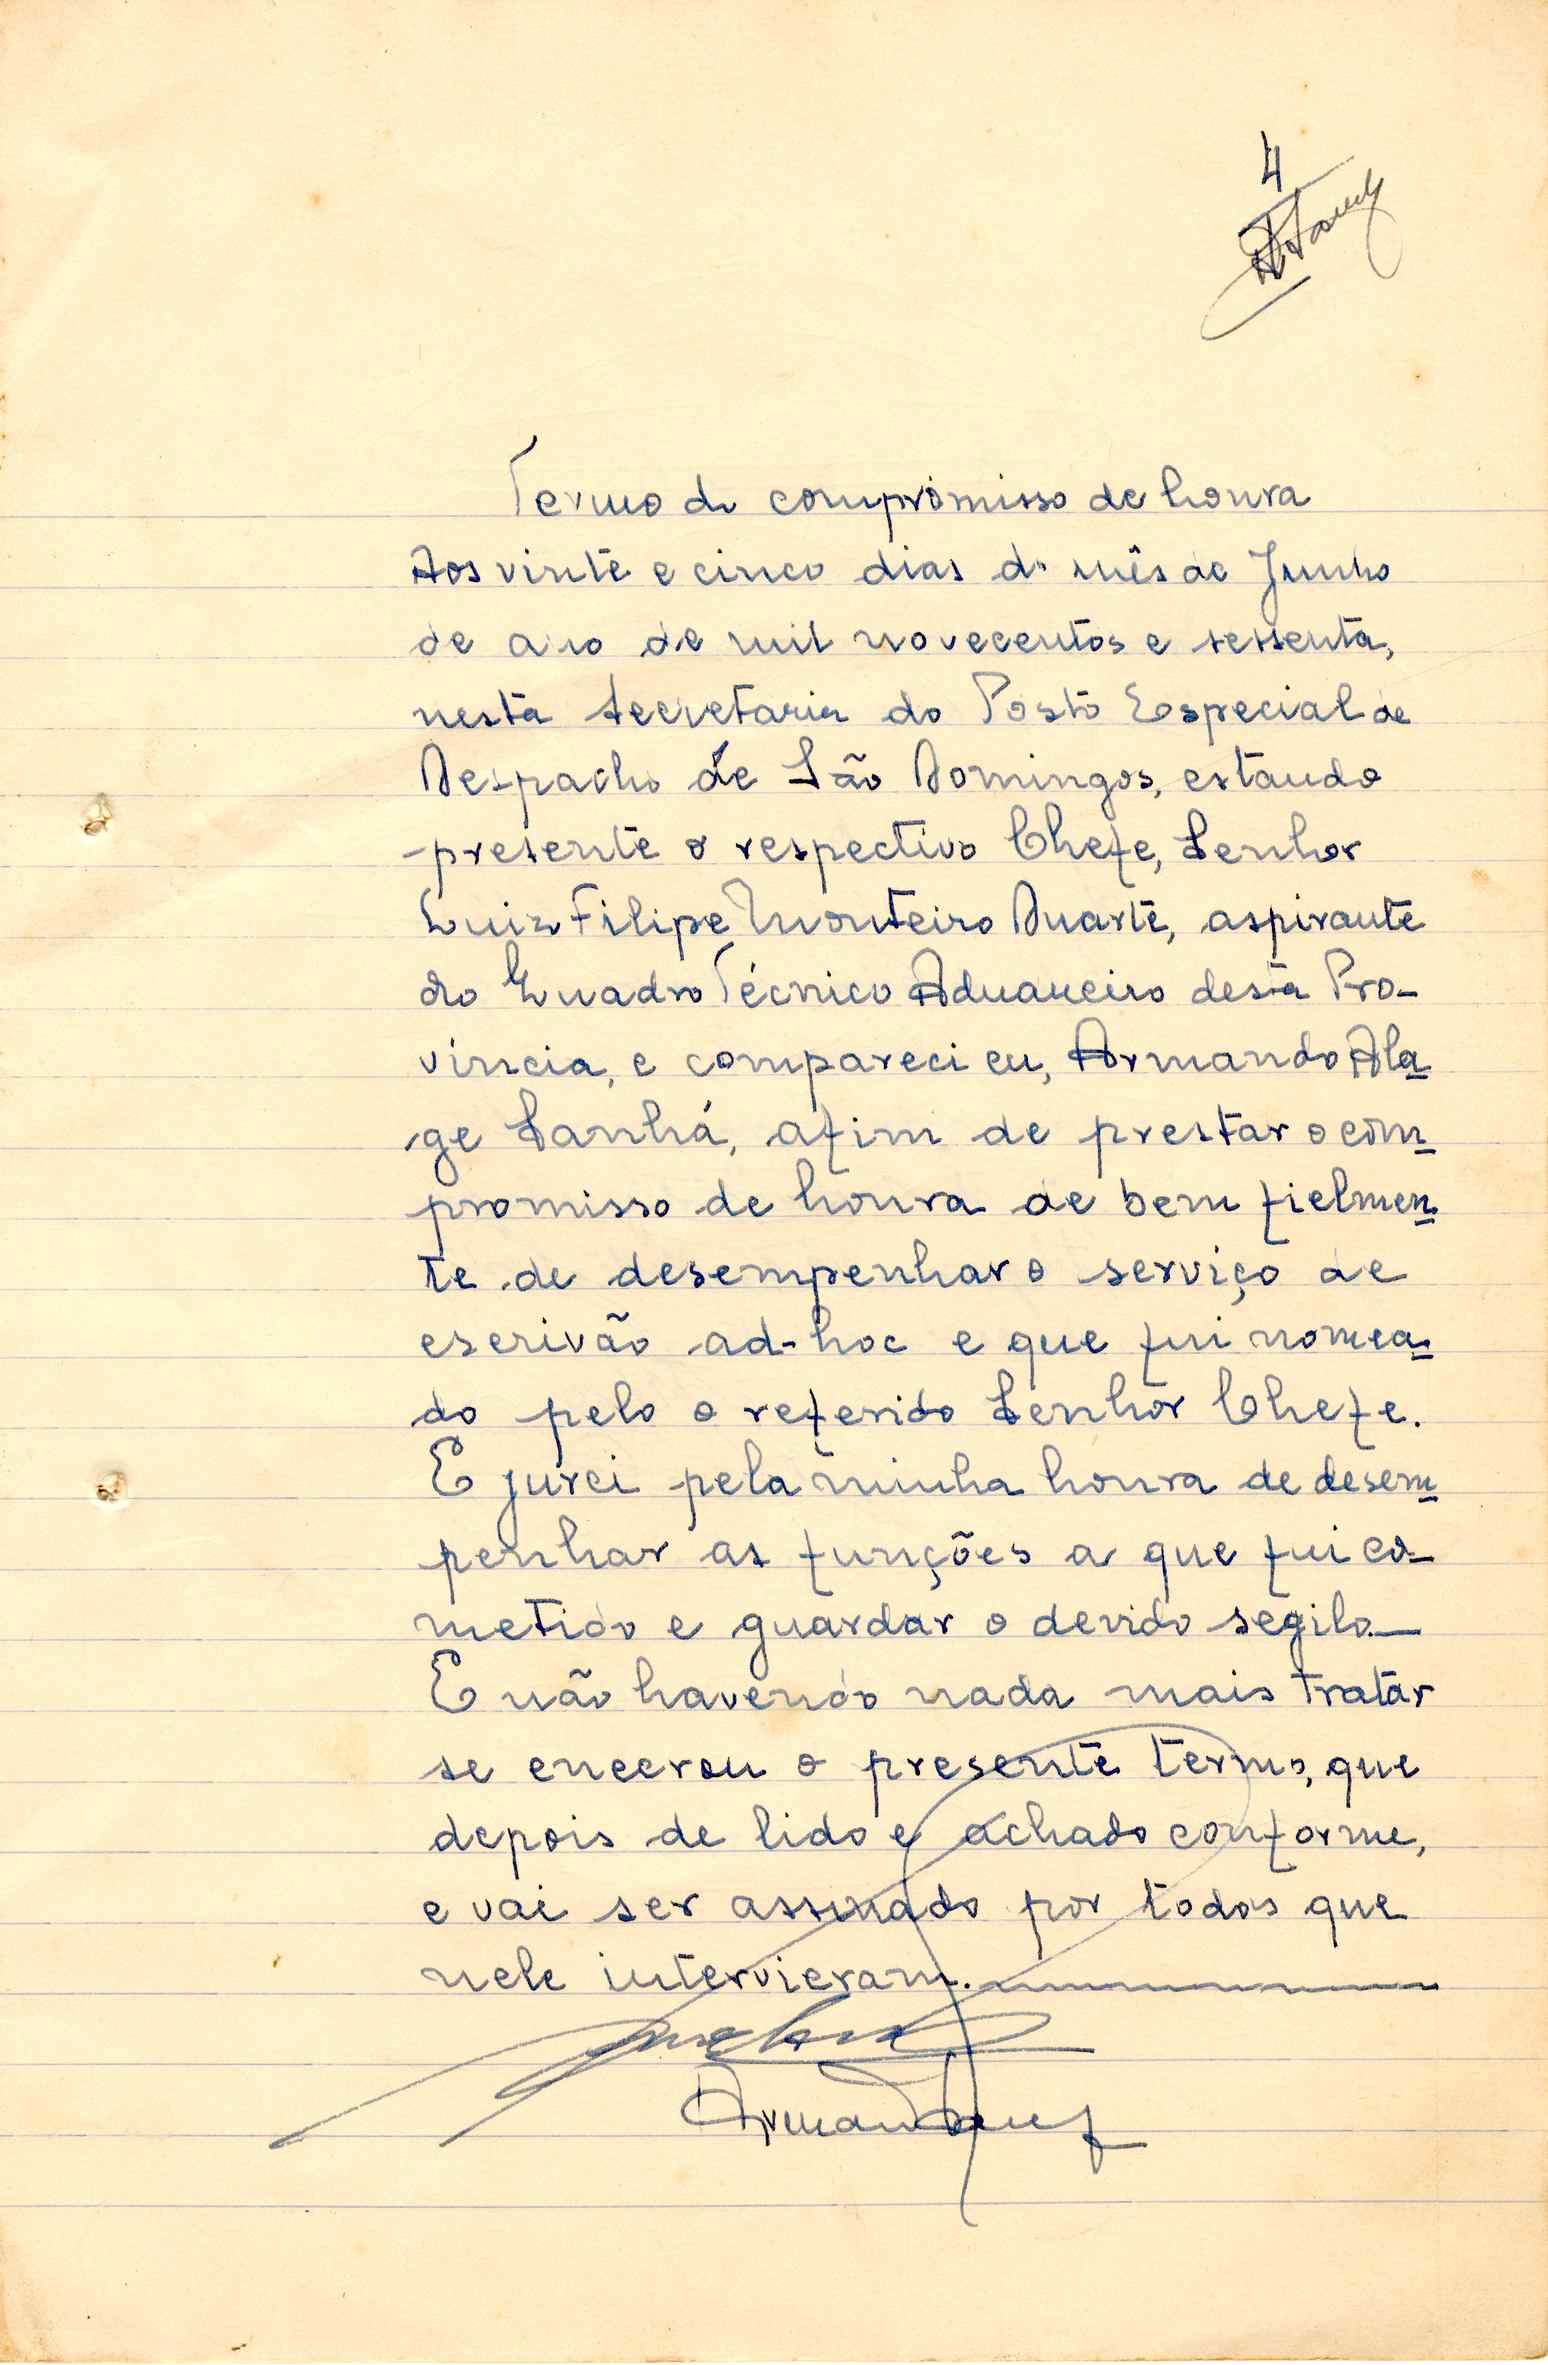 4
Termo de compromisso de honra
Aos vinte e cinco dias do mês de Junho
de ano de mil novecentos e sessenta,
nesta secretaria do Posto Especial de
Despacho de São Domingos, estando
presente o respectivo Chefe, Senhor
Luiz Filipe Monteiro Duarte, aspirante
do Quadro Técnico Aduaneiro desta Pro-
víncia, e compareci eu, Armando Ala-
ge Sanhá, afim de prestar o com-
promisso de honra de bem fielmen-
te de desempenhar o serviço de
escrivão ad-hoc e que fui nomea-
do pelo o referido Senhor Chefe.
E jurei pela minha honra de desem-
penhar as funções a que fui co-
metido e guardar o devido segilo.—
E não havendo nada mais tratar
se encerou o presente termo, que
depois de lido e achado conforme,
e vai ser assinado por todos que
nele intervieram.